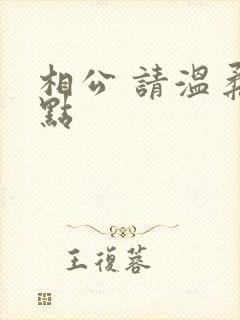 相公 請溫柔
點
王復蓉